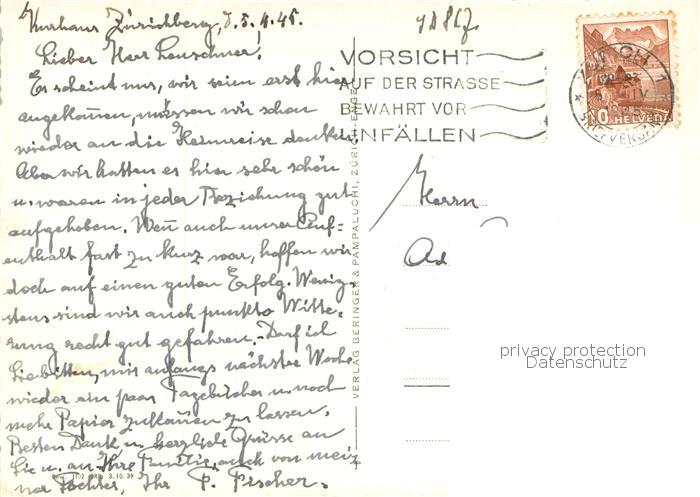 Kurhaus Zürichberg, d. 5.4.45.
Lieber Herr Leuschner!
Es scheint uns, wir seien erst hier
angekommen, müssen wir schon
wieder an die Heimreise denken.
Aber wir hatten es hier sehr schön
u. waren in jeder Beziehung gut
aufgehoben. Wenn auch unser Auf-
enthalt fast zu kurz war, hoffen wir
doch auf einen guten Erfolg. Wenig-
stens sind wir auch punkto Witte-
rung recht gut gefahren. Darf ich
Sie bitten, mir anfangs nächster Woche
wieder ein paar Tagebücher u. noch
mehr Papier zukommen zu lassen.
Besten Dank u. herzliche Grüsse an
Sie u. an Ihre Familie, auch von mei-
ner Tochter, Ihr P. Fischer.
3.10.39
VERLAG BERINGER & PAMPALUCHI, ZÜRICH-ENGE
VORSICHT
AUF DER STRASSE
BEWAHRT VOR
UNFÄLLEN
ZÜRICH 1
BRIEFVERSAND
10
HELVETIA
Herrn
Ad
privacy protection
Datenschutz